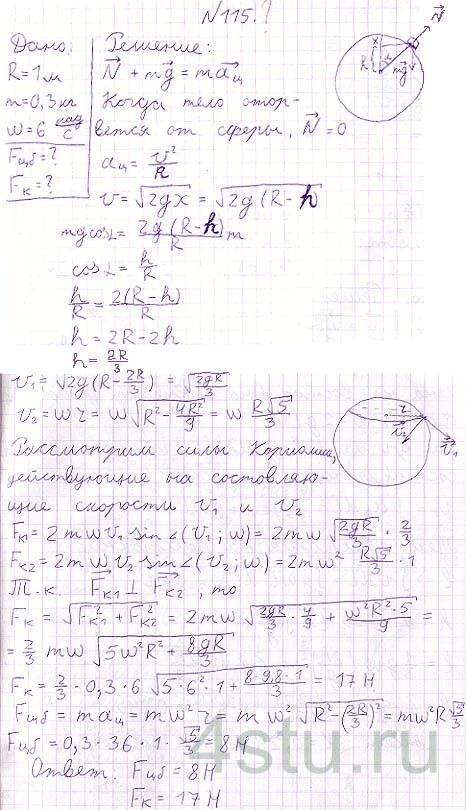 N 115.?
Дано:
R = 1 м
m = 0,3 кг
ω = 6 рад/с
Fцб = ?
Fк = ?
Решение:
N⃗ + mg⃗ = ma⃗ц
Когда тело отор-
вется от сферы, N⃗ = 0
aц = v²/R
v = √(2gx) = √(2g(R-h))
mg cosα = 2g(R-h)/R m
cosα = h/R
h/R = 2(R-h)/R
h = 2R-2h
h = 2R/3
x
R
h
α
N⃗
mg⃗
v₁ = √(2g(R - 2R/3)) = √(2gR/3)
v₂ = ωr = ω√(R² - 4R²/9) = ω R√5/3
r
v⃗₂
v⃗₁
Рассмотрим силы Кориолиса,
действующие на составляю-
щие скорости v₁ и v₂
Fк1 = 2mωv₁ sin∠(v₁; ω) = 2mω √(2gR/3) · 2/3
Fк2 = 2mωv₂ sin∠(v₂; ω) = 2mω² R√5/3 · 1
Т.к. F⃗к1 ⊥ F⃗к2, то
Fк = √(Fк1² + Fк2²) = 2mω √(2gR/3 · 4/9 + ω²R²·5/9) =
= 2/3 mω √(5ω²R² + 8gR/3)
Fк = 2/3 · 0,3 · 6 √(5·6²·1 + 8·9,8·1/3) = 17 Н
Fцб = maц = mω²r = mω² √(R² - (2R/3)²) = mω²R √5/3
Fцб = 0,3 · 36 · 1 · √5/3 = 8 Н
Ответ: Fцб = 8 Н
Fк = 17 Н
4stu.ru